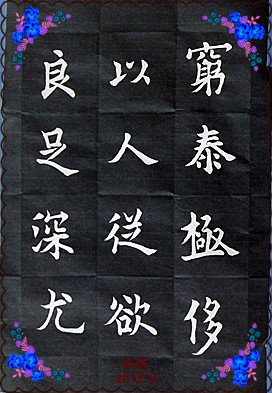 窮泰極侈
以人從欲
良足深尤